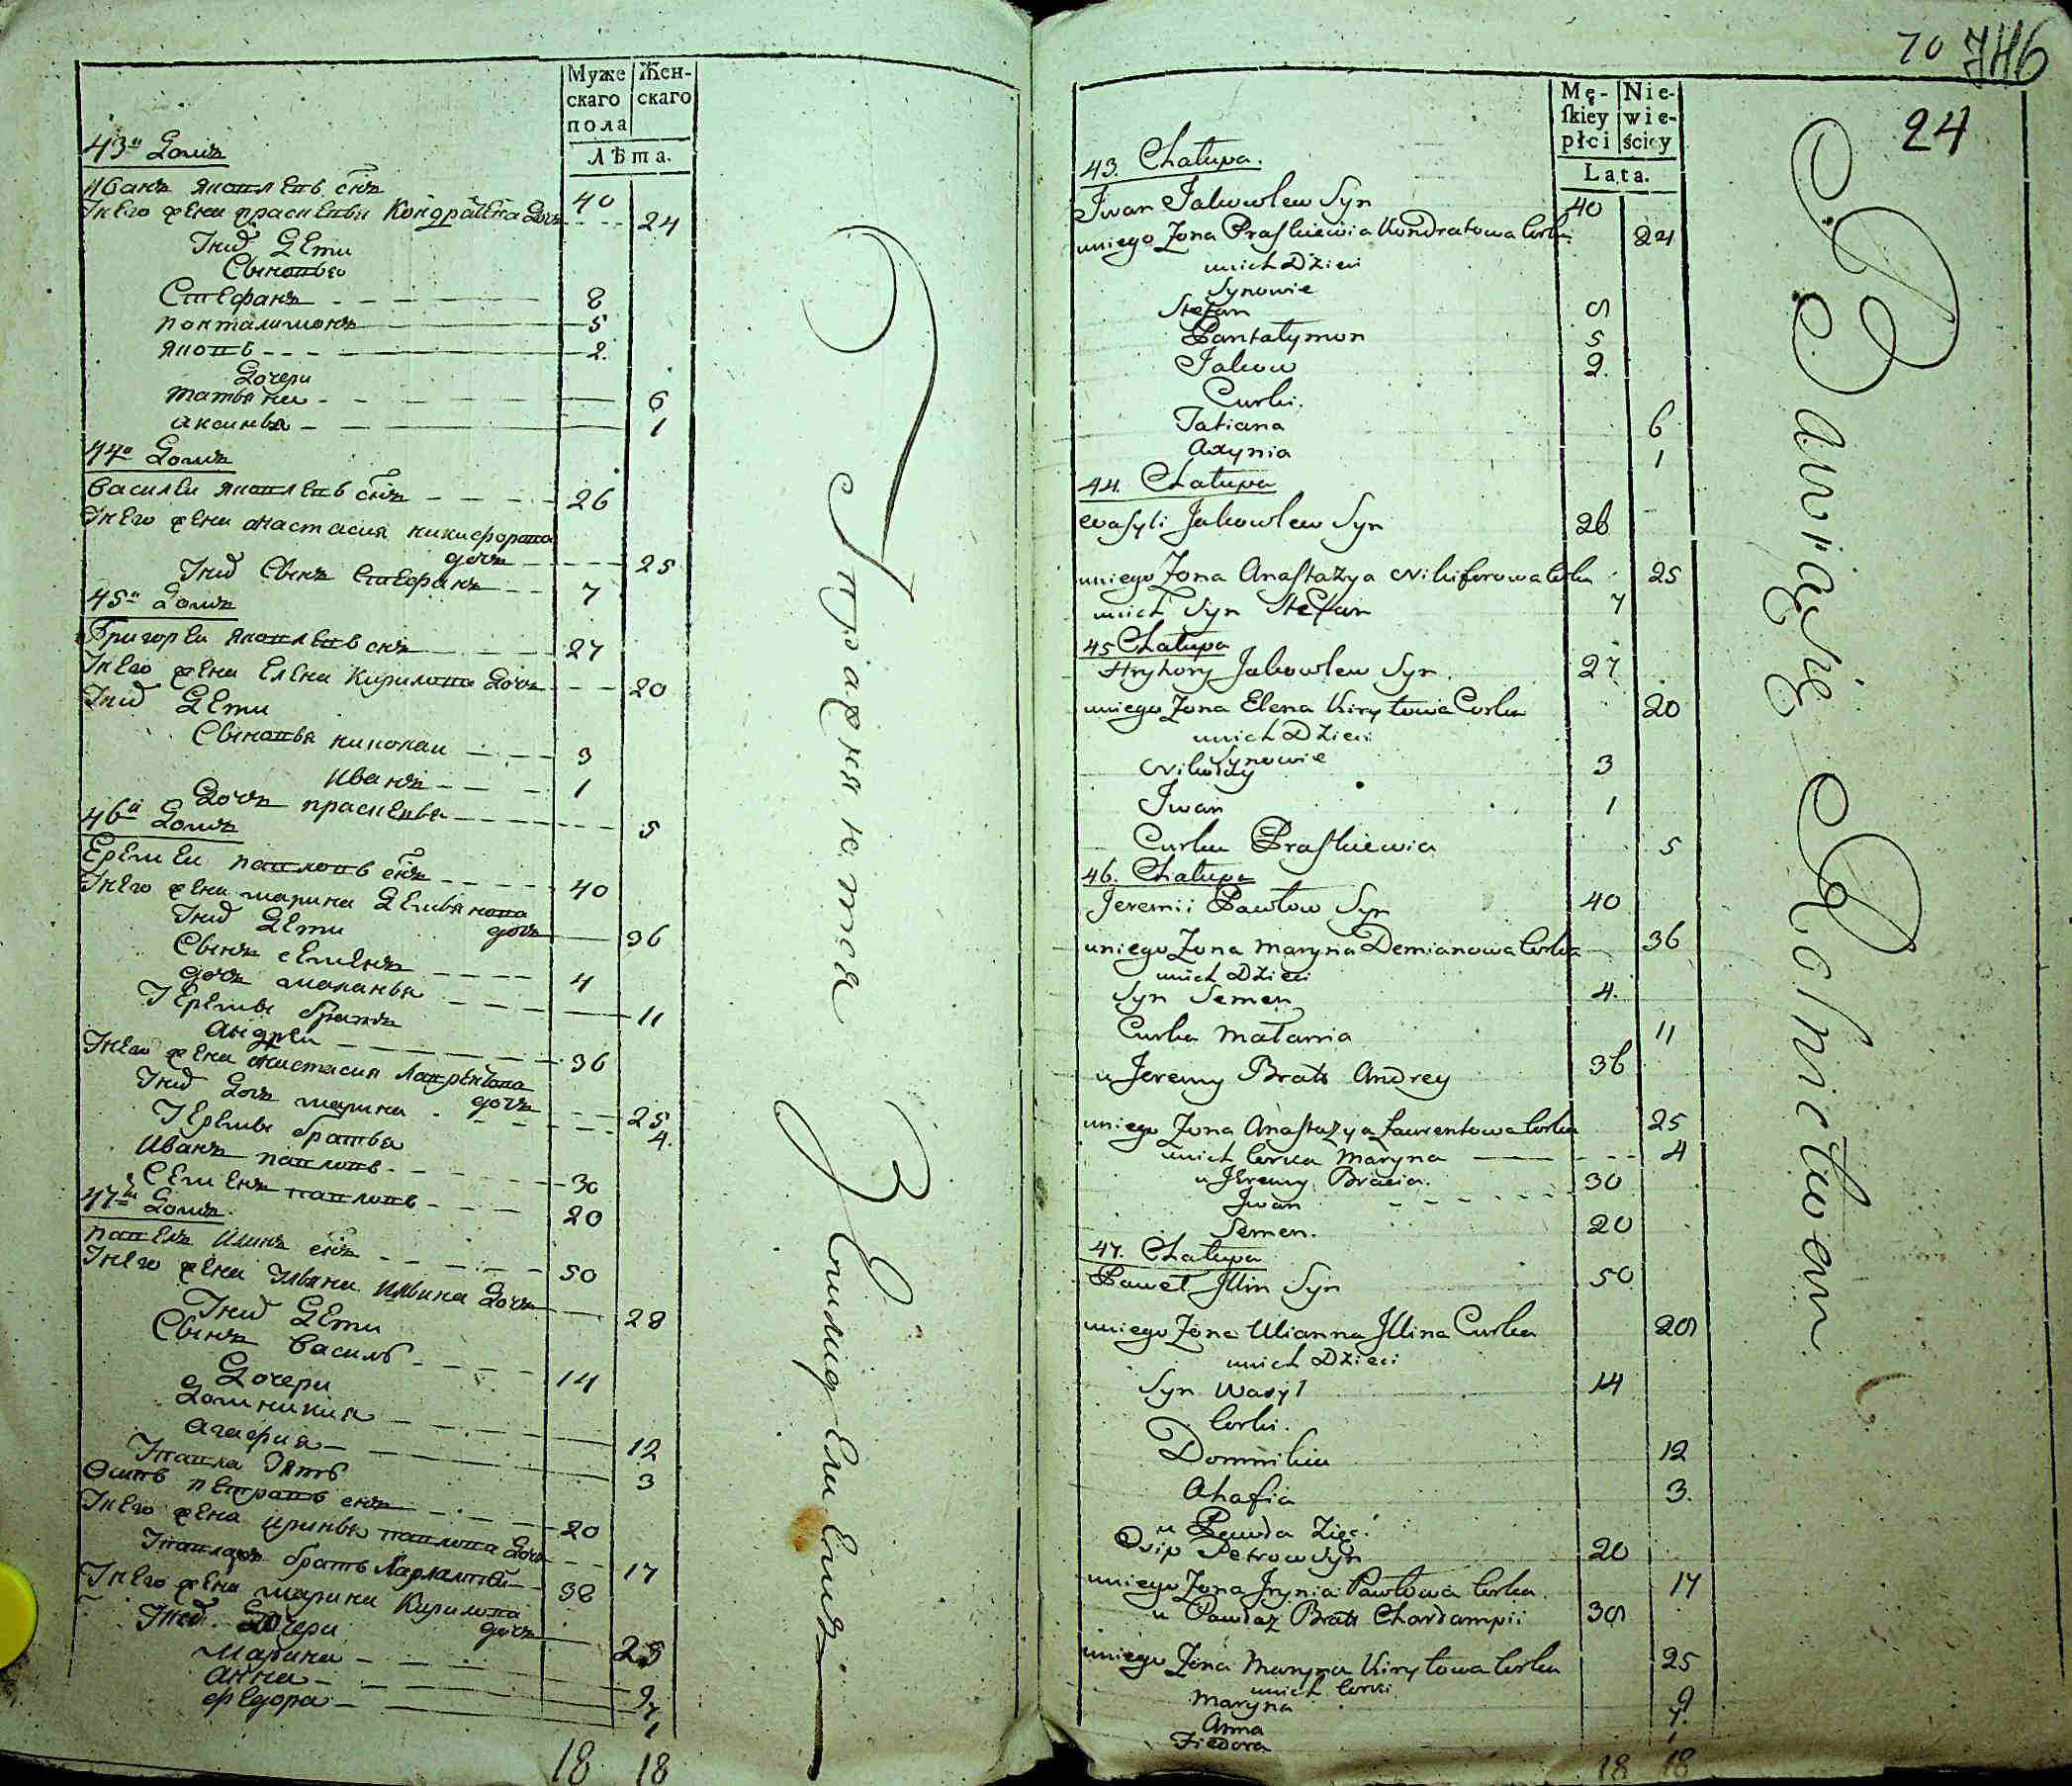 Муже
скаго
пола
Жен-
скаго
Лѣта.
43й Домъ
Иванъ Яковлевъ снъ 40
Унего жена Прасковья Кондратева дочь 24
Унихъ дети
Сыновья
Стефанъ 8
Понталимонъ 5
Яковъ 2.
Дочери
Татьяна 6
Аксинья 1
44й Домъ
Василеи Яковлевъ снъ 26
Унего жена Анастасия Никифорова
дочь 25
Унихъ сынъ Стефанъ 7
45й Домъ
Григореи Яковлевъ снъ 27
Унего жена Елена Кирилова дочь 20
Унихъ дети
Сыновья Николаи 3
Иванъ 1
Дочь Прасковья 5
46й Домъ
Еремеи Павловъ снъ 40
Унего жена Марина Демьянова
дочь 36
Унихъ дети
Сынъ Семенъ 4
дочь Маланья 11
Уеремы братъ
Андреи 36
Унего жена Анастасия Лаврентова
дочь 25
Унихъ дочь Марина 4.
Уеремы братья
Иванъ Павловъ 30
Семенъ Павловъ 20
47й Домъ.
Павелъ Илинъ снъ 50
Унего жена Ульяна Ильина дочь 28
Унихъ дети
Сынъ Василь 14
Дочери
Домникия 12
Агафия 3
Упавла зять
Осипъ Петровъ снъ 20
Унего жена Иринья Павлова дочь 17
Упавла братъ Харлампей 38
Унего жена Марина Кирилова
дочь 25
Унихъ дочери
Марина 9
Анна 7
Федора 1
18 18
Упражняются
Земледелиемъ
70 746
24
Mę-
ſkiey
płci
Nie-
wie-
ściey
Lata.
43. Chałupa.
Jwan Jakowlew Syn 40
uniego Zona Praſkiewia Kondratowa Corka 24
unich Dzieci
Synowie
Stefan 8
Pantałymon 5
Jakow 2.
Curki.
Tatiana 6
Axynia 1
44. Chałupa
Waſyli Jakowlew Syn 26
uniego Zona Anaſtazya Nikiforowa Corka 25
unich Syn Stefan 7
45 Chałupa
Hryhory Jakowlew Syn. 27
uniego Zona Elena Kiryłowa Curka 20
unich Dzieci
Synowie
Nikołay 3
Jwan 1
Curka Praſkiewia 5
46. Chałupa
Jeremii Pawłow Syn 40
uniego Zona Maryna Demianowa Corka 36
unich Dzieci
Syn Semen 4.
Curka Małania 11
u Jeremy Brat Andrey 36
uniego Zona Anaſtazya Laurentowa Corka 25
unich Corka Maryna 4
u Jeremy Bracia.
Jwan 30
Semen. 20
47. Chałupa
Paweł Jllin Syn 50
uniego Zona Ulianna Jllina Curka 28
unich Dzieci
Syn Wasyl 14
Corki.
Domnikia 12
Ahafia 3.
u Pawła Zięć
Osip Petrow Syn 20
uniego Zona Jrynia Pawłowa Corka 17
u Pawła Brat Charłampii 38
uniego Zona Maryna Kiryłowa Corka 25
unich Corki
Maryna 9
Anna 7.
Fiedora 1
18 18
Bawią się Rolnictwem